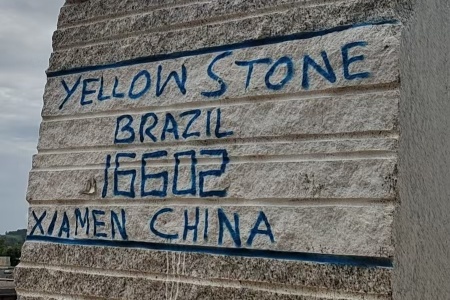 YELLOW STONE
BRAZIL
16602
XIAMEN CHINA